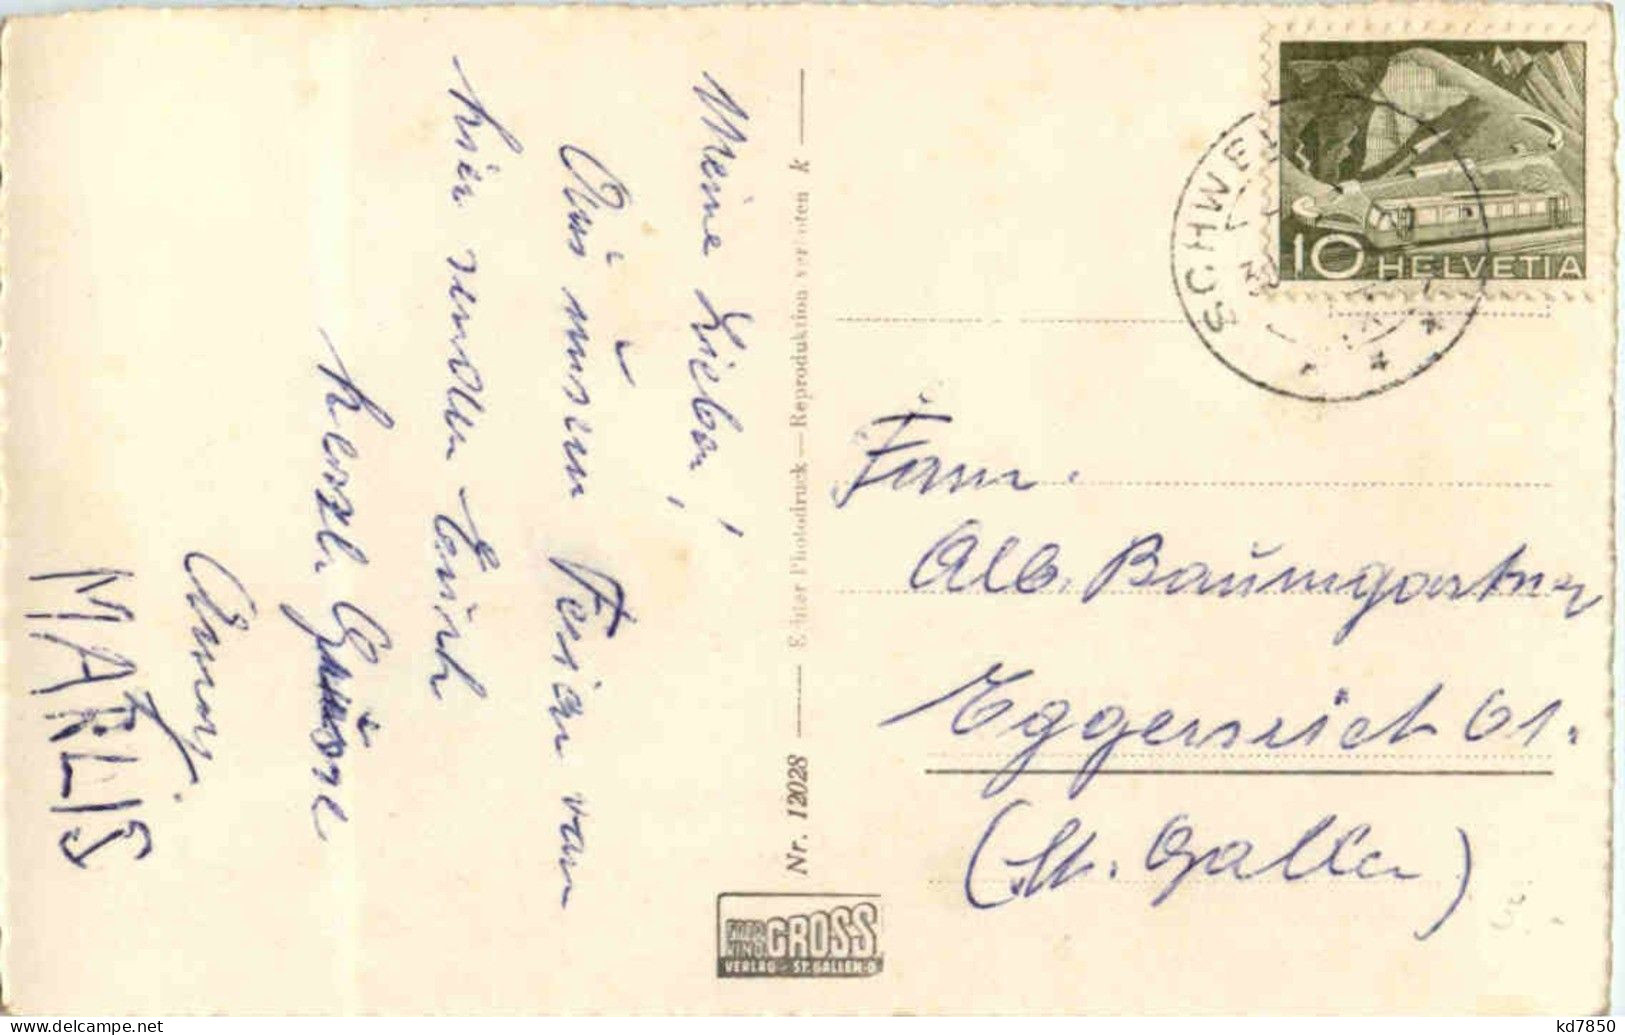 Meine Lieben!
Aus unsern Ferien von
hier senden Euch
herzl. Grüsse
Anny.
MARLIS
Echter Photodruck — Reproduktion verboten k
Nr. 12028
FOTO GROSS
VERLAG - ST. GALLEN-O
SCHWE
30
10 HELVETIA
Fam.
Alb. Baumgartner
Eggersriet 61.
(St. Gallen)
kd7850